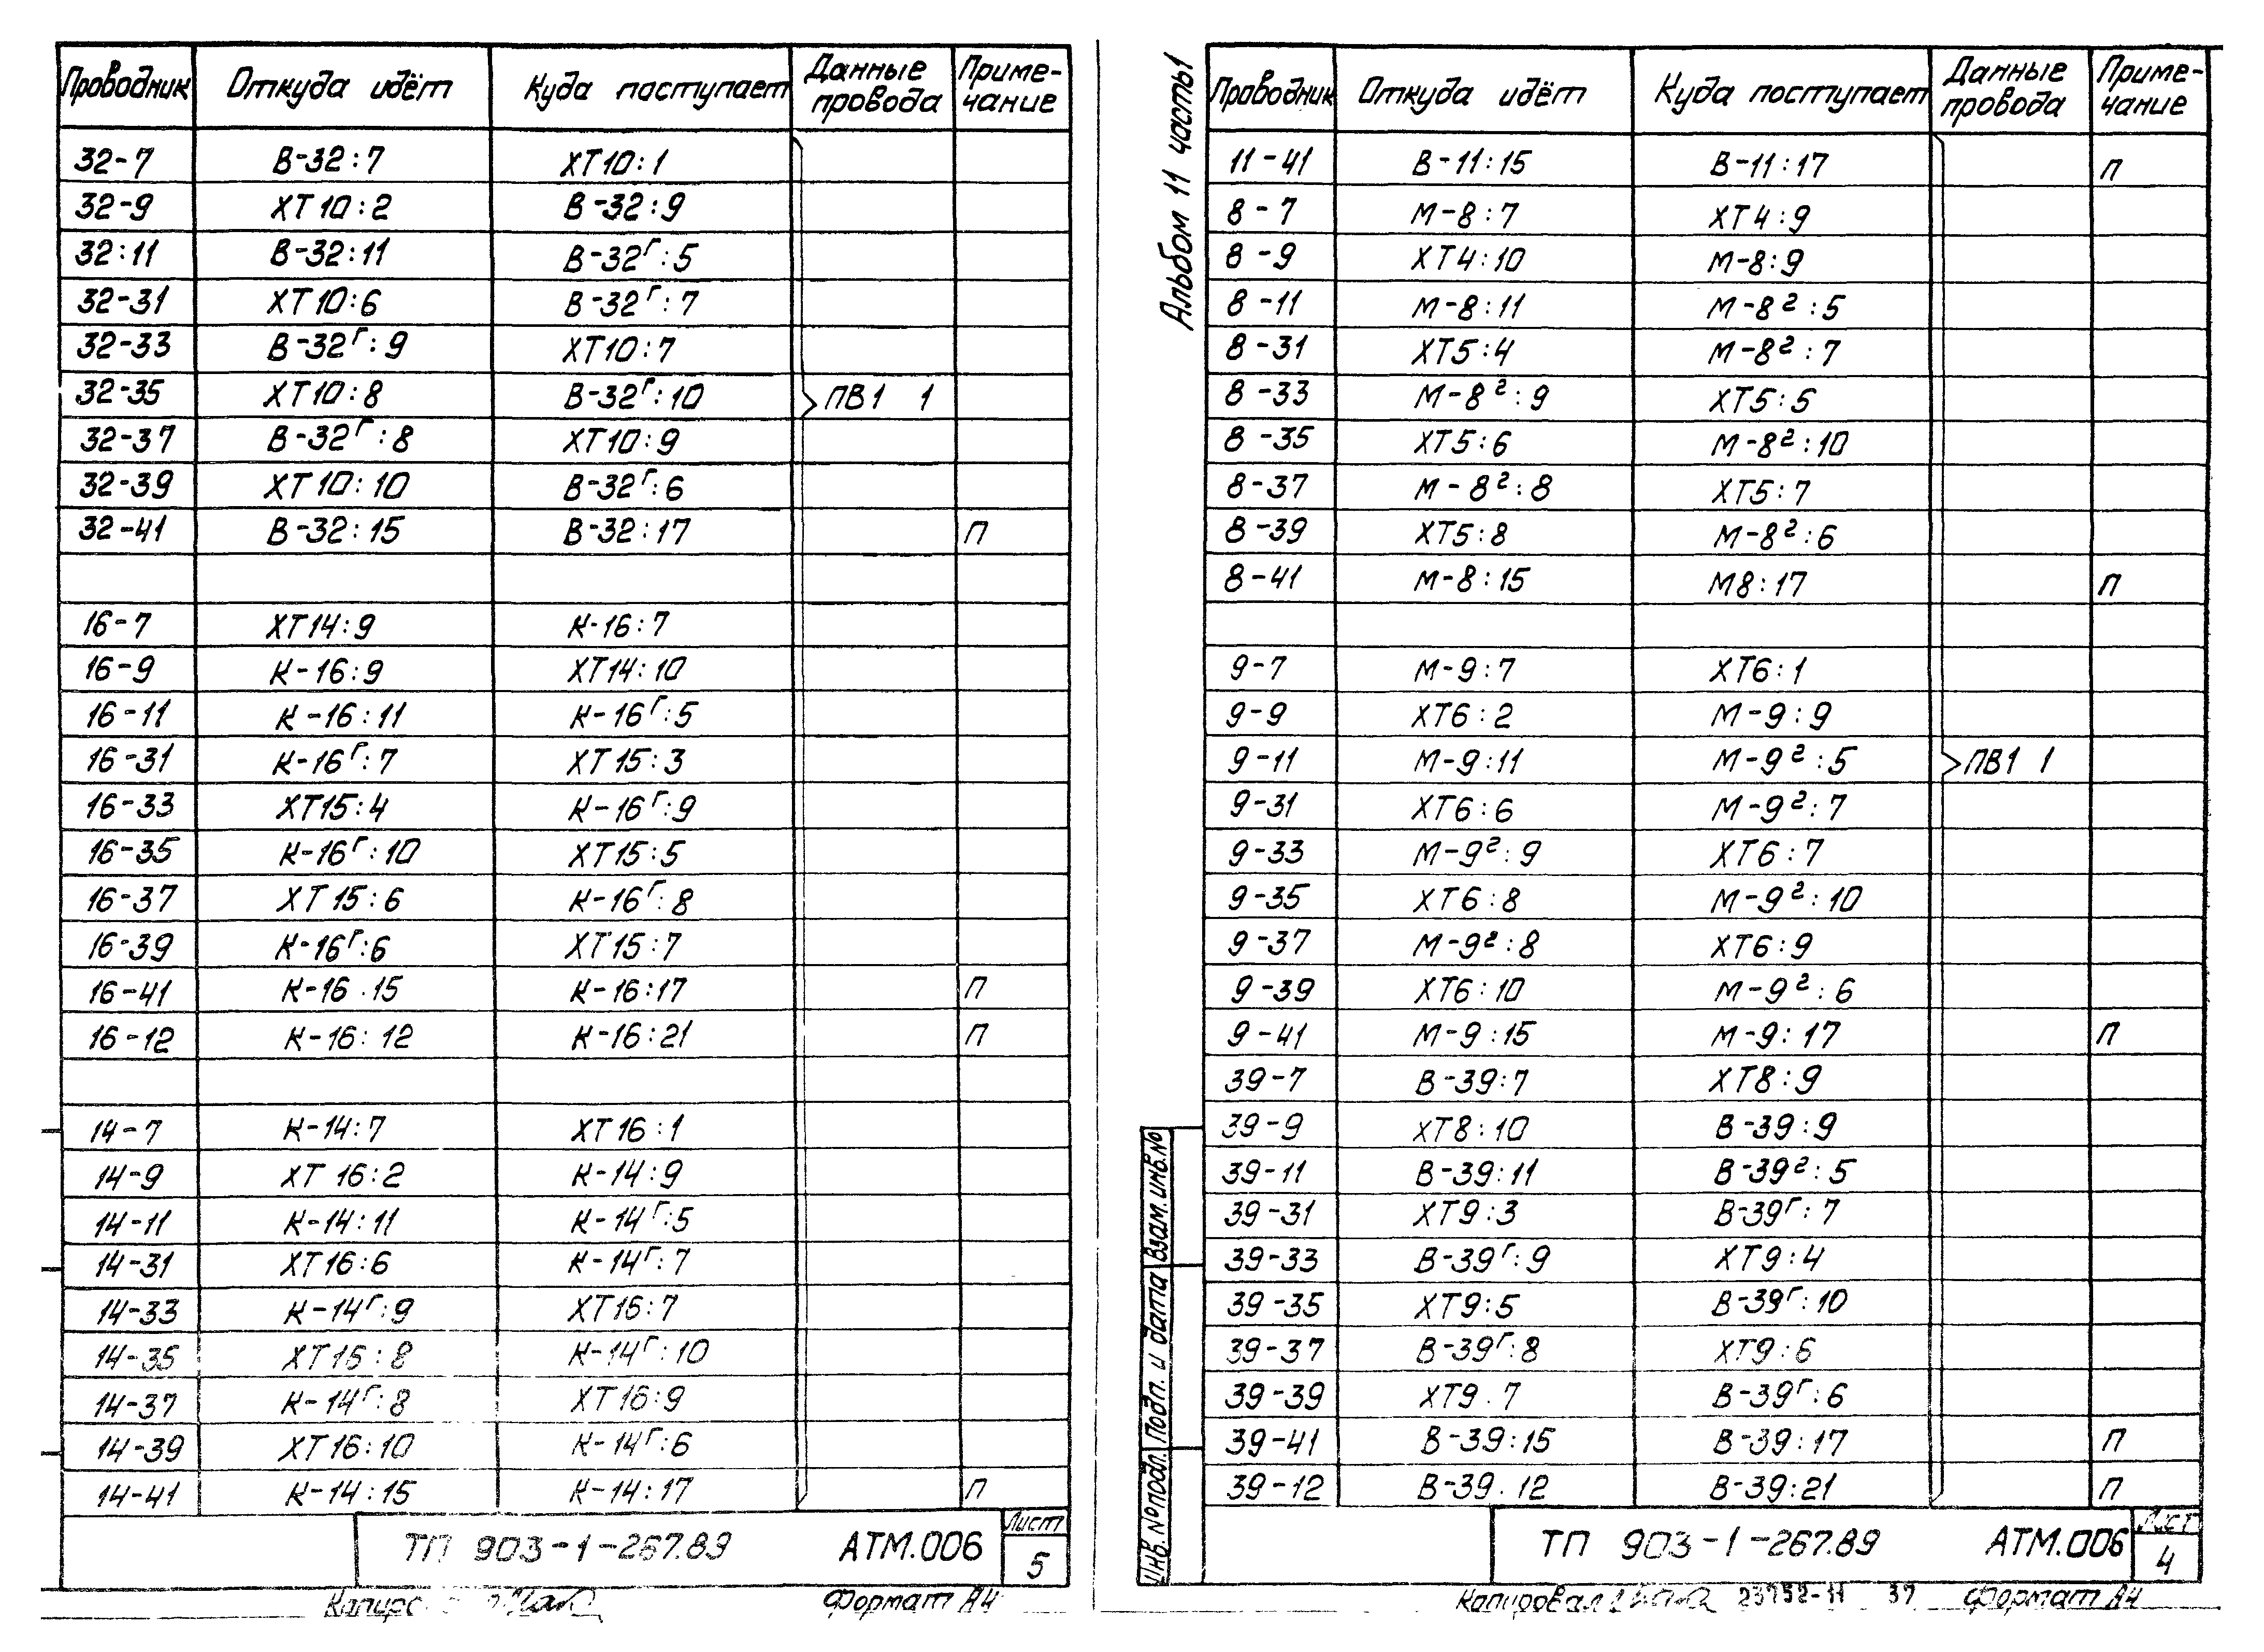 Проводник Откуда идёт Куда поступает Данные провода Приме-чание
32-7 В-32:7 ХТ10:1
32-9 ХТ10:2 В-32:9
32:11 В-32:11 В-32г:5
32-31 ХТ10:6 В-32г:7
32-33 В-32г:9 ХТ10:7
32-35 ХТ10:8 В-32г:10 ПВ1 1
32-37 В-32г:8 ХТ10:9
32-39 ХТ10:10 В-32г:6
32-41 В-32:15 В-32:17 П
16-7 ХТ14:9 К-16:7
16-9 К-16:9 ХТ14:10
16-11 К-16:11 К-16г:5
16-31 К-16г:7 ХТ15:3
16-33 ХТ15:4 К-16г:9
16-35 К-16г:10 ХТ15:5
16-37 ХТ15:6 К-16г:8
16-39 К-16г:6 ХТ15:7
16-41 К-16.15 К-16:17 П
16-12 К-16:12 К-16:21 П
14-7 К-14:7 ХТ16:1
14-9 ХТ16:2 К-14:9
14-11 К-14:11 К-14г:5
14-31 ХТ16:6 К-14г:7
14-33 К-14г:9 ХТ16:7
14-35 ХТ16:8 К-14г:10
14-37 К-14г:8 ХТ16:9
14-39 ХТ16:10 К-14г:6
14-41 К-14:15 К-14:17 П
ТП 903-1-267.89 АТМ.006 Лист
5
Формат А4
Альбом 11 часть1
Проводник Откуда идёт Куда поступает Данные провода Приме-чание
11-41 В-11:15 В-11:17 П
8-7 М-8:7 ХТ4:9
8-9 ХТ4:10 М-8:9
8-11 М-8:11 М-8г:5
8-31 ХТ5:4 М-8г:7
8-33 М-8г:9 ХТ5:5
8-35 ХТ5:6 М-8г:10
8-37 М-8г:8 ХТ5:7
8-39 ХТ5:8 М-8г:6
8-41 М-8:15 М8:17 П
9-7 М-9:7 ХТ6:1
9-9 ХТ6:2 М-9:9
9-11 М-9:11 М-9г:5 ПВ1 1
9-31 ХТ6:6 М-9г:7
9-33 М-9г:9 ХТ6:7
9-35 ХТ6:8 М-9г:10
9-37 М-9г:8 ХТ6:9
9-39 ХТ6:10 М-9г:6
9-41 М-9:15 М-9:17 П
39-7 В-39:7 ХТ8:9
39-9 ХТ8:10 В-39:9
39-11 В-39:11 В-39г:5
39-31 ХТ9:3 В-39г:7
39-33 В-39г:9 ХТ9:4
39-35 ХТ9:5 В-39г:10
39-37 В-39г:8 ХТ9:6
39-39 ХТ9.7 В-39г:6
39-41 В-39:15 В-39:17 П
39-12 В-39.12 В-39:21 П
Инв. № подл. Подп. и дата Взам. инв. №
ТП 903-1-267.89 АТМ.006 Лист
4
Копировал 37 Формат А4